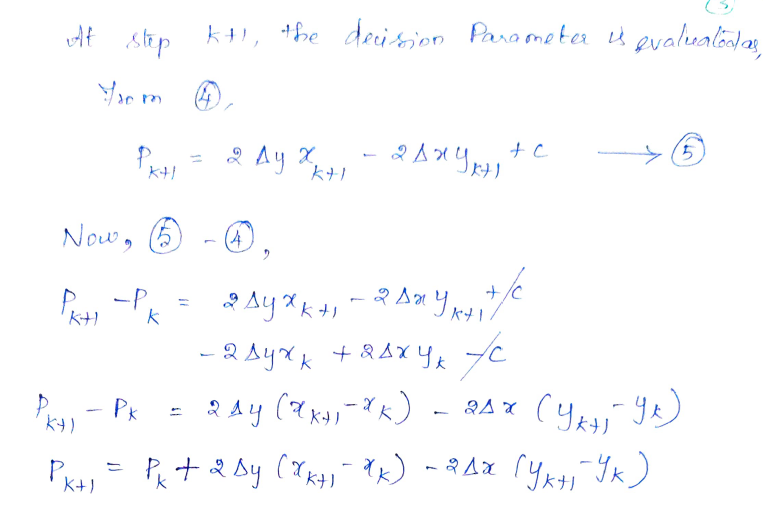 (3)
At step k+1, the decision Parameter is evaluated as,
From ④,
P_{k+1} = 2 Δy x_{k+1} - 2Δx y_{k+1} + c ⟶ ⑤
Now, ⑤ - ④,
P_{k+1} - P_k = 2Δy x_{k+1} - 2Δx y_{k+1} + c
- 2Δy x_k + 2Δx y_k - c
P_{k+1} - P_k = 2Δy (x_{k+1} - x_k) - 2Δx (y_{k+1} - y_k)
P_{k+1} = P_k + 2Δy (x_{k+1} - x_k) - 2Δx (y_{k+1} - y_k)